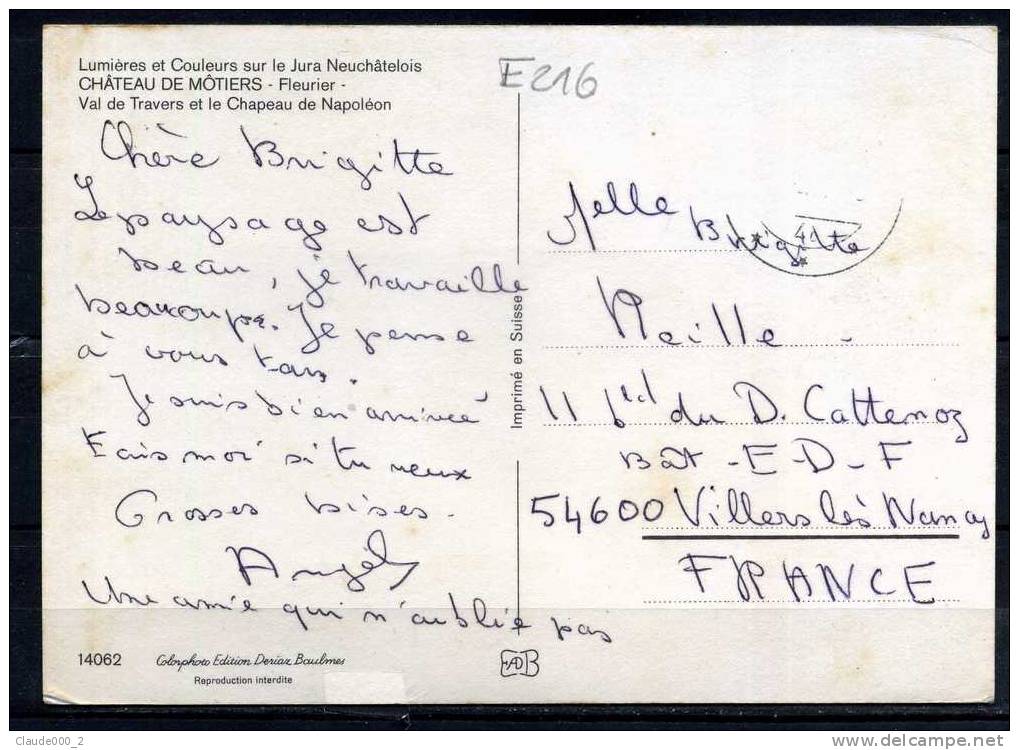 Lumières et Couleurs sur le Jura Neuchâtelois
CHÂTEAU DE MÔTIERS - Fleurier -
Val de Travers et le Chapeau de Napoléon
E216
Chère Brigitte
Le paysage est
beau, je travaille
beaucoup. Je pense
à vous tous.
Je suis bien arrivée
Ecris moi si tu veux
Grosses bises.
Angél
Une amie qui n'aublie pas
14062 Colorphoto Edition Deriaz Baulmes
Reproduction interdite
Imprimé en Suisse
Melle Brigitte
41
Reille
11 bld du D. Cattenoz
Bât - E - D - F
54600 Villers lès Nancy
FRANCE
EDB
Claude000_2
delcampe.net